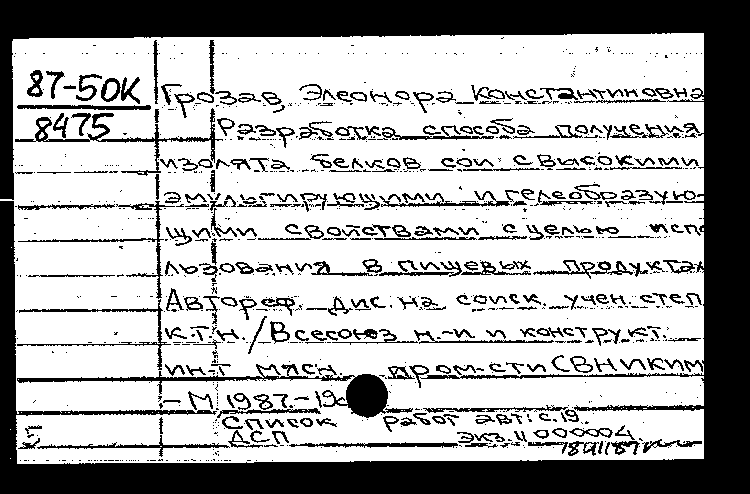 87-50К
8475
Грозав, Элеонора Константиновна
Разработка способа получения
изолята белков сои с высокими
эмульгирующими и гелеобразую-
щими свойствами с целью испо
льзования в пищевых продуктах
Автореф. дис. на соиск. учен. степ.
к.т.н. / Всесоюз н.-и и конструкт.
ин-т мясн. пром-сти (ВНИКИМ
- М, 1987. - 19
Список работ авт: с.19.
5 ДСП экз. 11 000004